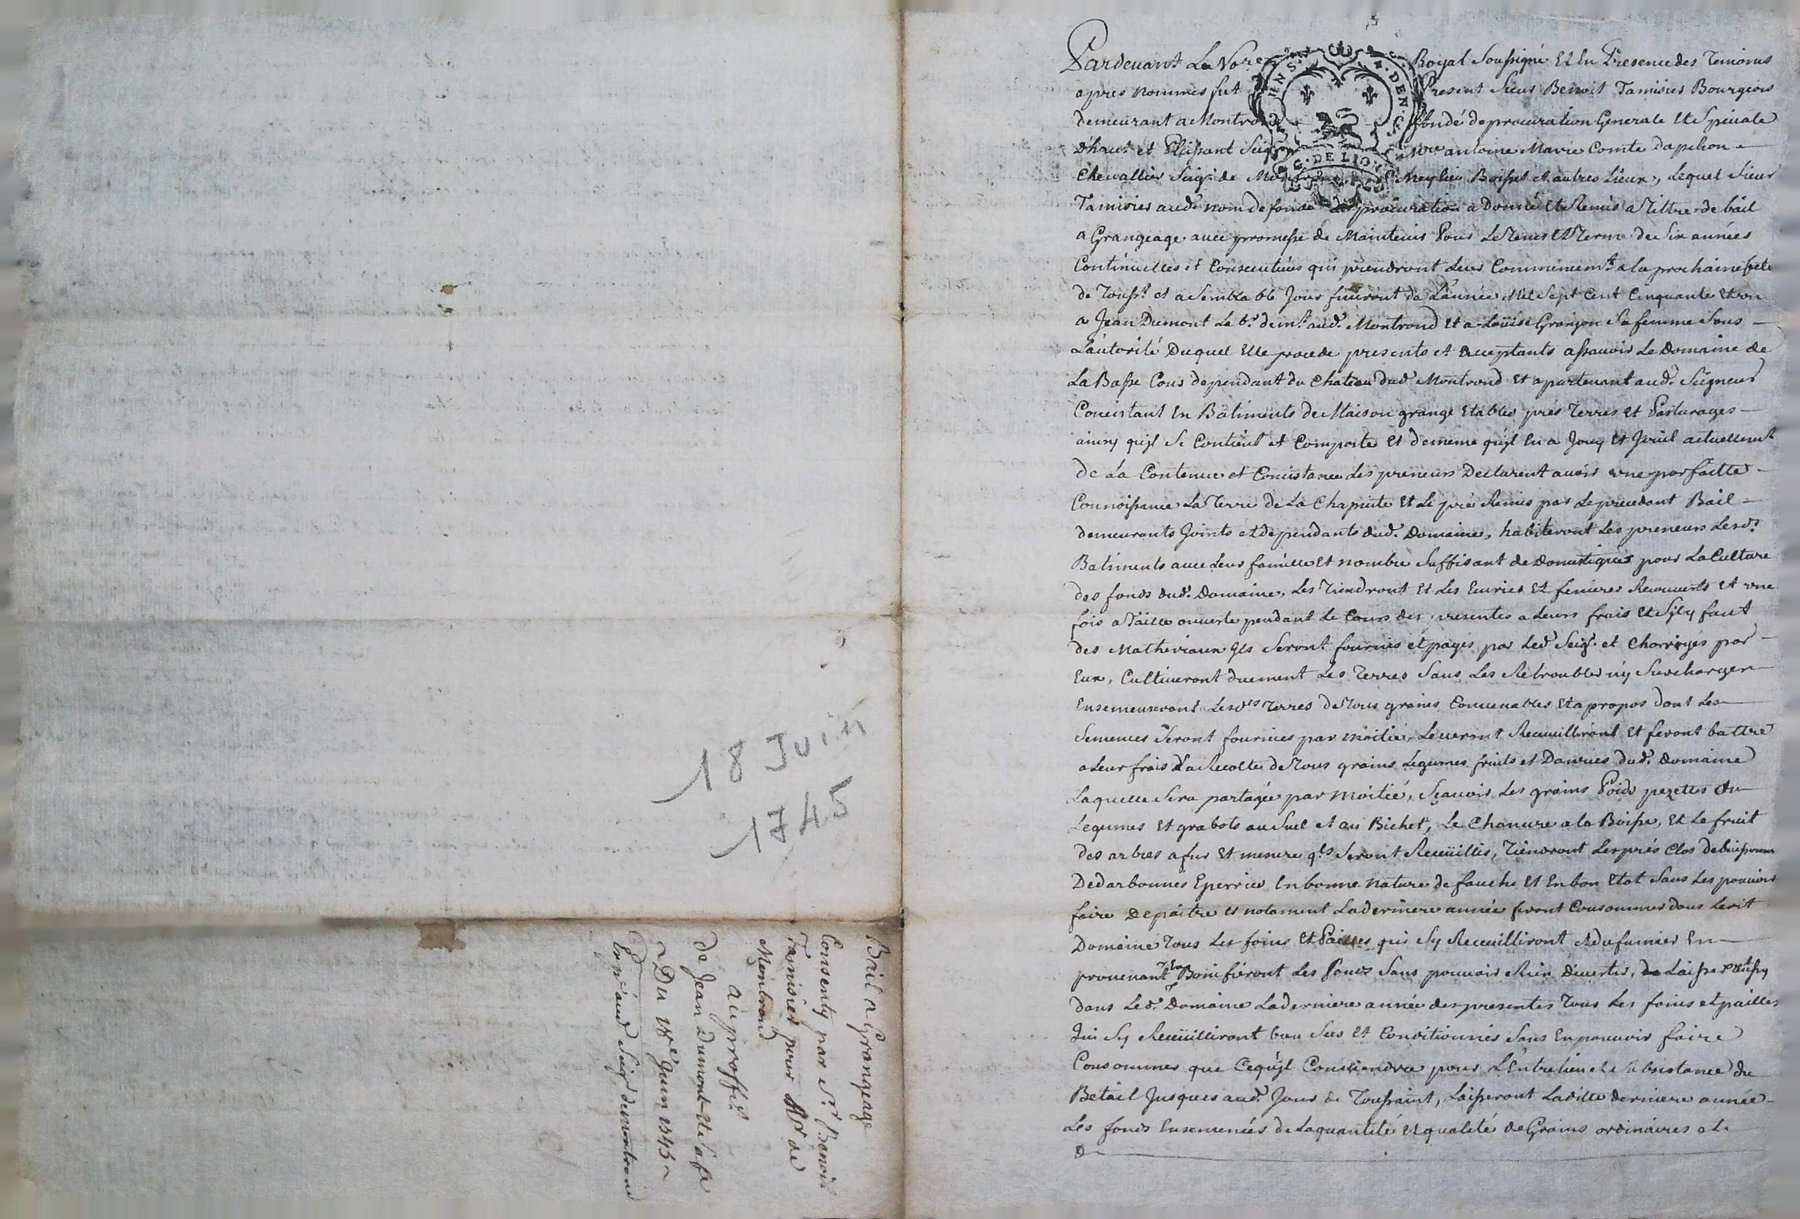 18 Juin
1745
Bail a Grangeage
Consenty par Sr. Benoit
Tamisier pour Mr de
Montrond
au proffit
de Jean Dumont et sa fe
Du 18e Juin 1745
Pardevant Le Nore Royal Soussigné Et En Presence des Temoins
apres nommés fut Present Sieur Benoit Tamisier Bourgeois
demeurant a Montrond fondé de procuration Generale Et Speciale
d'haut et Puissant Seigr antoine Marie Comte Dapchon
Chevallier Seigr. de Montrond Meylieu Boisset et autres Lieux, Lequel Sieur
Tamisier aud. nom de fondé de procuration a Donné Et Remis a Tittre de bail
a Grangeage avec promesse de Maintenir Pour Le Tems Et Terme de Six années
Continuelles et Consecutives qui prendront Leur Commencemt. a La prochaine fete
de Toussts. et a Semblable Jour finiront de L'année Mil Sept Cent Cinquante Et un
a Jean Dumont La br. demt. aud. Montrond Et a Loüise Granjon Sa femme Sous
L'autorité Duquel Elle procede presents et acceptants assavoir Le Domaine de
La Basse Cour dependant du Chateau dud. Montrond Et apartenant aud. Seigneur
Consistant En Batiments de Maison grange Etables prés Terres et Pasturages
ainsy qu'jl Se Contient et Comporte Et de meme qu'jl En a Jouy Et Joüit actuellemt
de La Contenue et Consistance Les preneurs Declarent avoir une parfaitte
Connoissance La Terre de La Chapute Et Le pré Remis par Le precedant Bail
demeurants Joints et dependants dud. Domaine, habiteront Les preneurs Lesds.
Batiments avec Leur famille Et nombre Suffisant de Domestiques pour La Culture
des fonds dud. Domaine, Les Tiendront Et Les Ecuries Et fenieres Recouverts Et une
fois a Taille ouverte pendant Le Cours des presentes a Leurs frais Et S'jl y faut
des Matheriaux jls Seront fournis et payés par Led. Seigr. et Charroyés par
Eux, Cultiveront duement Les Terres Sans Les Retroubler ny Surcharger
Ensemenseront Lesdes Terres de Tous grains Convenables Et a propos dont Les
Semences Seront fournies par moitié, Leveront Recueuilliront Et feront battre
a Leur frais La Recolte de Tous grains Légumes fruits et Danrées dud. Domaine
Laquelle Sera partagée par Moitié, Sçavoir Les grains Poids pezettes ou
Legumes Et grabots au Suel et au Bichet, Le Chanvre a la Boisse, Et Le fruit
des arbres a fur Et mesure qls Seront Recüeillis, Tiendront Les prés Clos de buissonns
Dedarbonnés Epierrés En bonne nature de fauche Et En bon Etat Sans Les pouvoir
faire Depaitre Et notament La derniere année feront Consommer dans Ledit
Domaine Tous Les foins Et Pailles qui S'y Recueuilliront Et du fumier En
provenant Bonifieront Les fonds Sans pouvoir Rien Divertir, Laisseront aussy
dans Led. Domaine La derniere année des presentes Tous Les foins et pailles
qui S'y Recueuilliront bon Sec Et Conditionnés Sans En pouvoir faire
Consommer que Ce qu'jl Conviendra pour L'Entretien Et Subsistance du
Betail Jusques aud. Jour de Toussaint, Laisseront Ladite derniere année
Les fonds Ensemencés de La quantité Et qualité de Grains ordinaires et
de